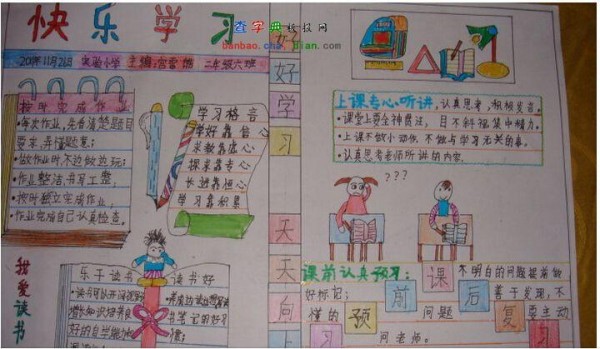 快乐学习
查字典板报网
banbao.chazidian.com
2011年11月26日 实验小学 主编:宫雪皓 二年级六班
按时完成作业
•每次作业,先看清楚题目
要求,弄懂题意;
•做作业时,不边做边玩;
•作业整洁,书写工整;
•按时独立完成作业,
•作业完成自己认真检查。
学习格言
学好靠信心
求教靠虚心
探求靠专心
长进靠担心
学习靠积累
我爱读书
乐于读书
读书好
•读书可以开阔视野
增长知识培养良
好的自学能力
好好学习
天天向上
上课专心听讲,认真思考,积极发言。
•课堂上要全神贯注,目不斜视集中精力。
•上课不做小动作,不做与学习无关的事。
•认真思考老师所讲的内容.
???
课前认真预习:
不明白的问题提前做
好标记;
善于发现,不
懂的
问题
要主动
问老师。
课前预习
课后复习